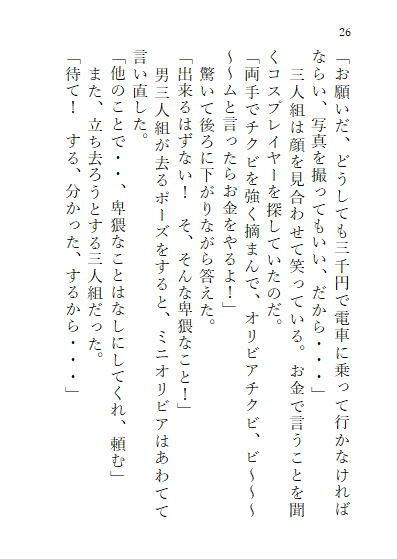 26
「お願いだ、どうしても三千円で電車に乗って行かなければ
ならい、写真を撮ってもいい、だから・・・」
三人組は顔を見合わせて笑っている。お金で言うことを聞
くコスプレイヤーを探していたのだ。
「両手でチクビを強く摘まんで、オリビアチクビ、ビ〜〜〜
〜〜ムと言ったらお金をやるよ！」
驚いて後ろに下がりながら答えた。
「出来るはずない！　そ、そんな卑猥なこと！」
男三人組が去るポーズをすると、ミニオリビアはあわてて
言い直した。
「他のことで・・、卑猥なことはなしにしてくれ、頼む」
また、立ち去ろうとする三人組だった。
「待て！　する、分かった、するから・・・」